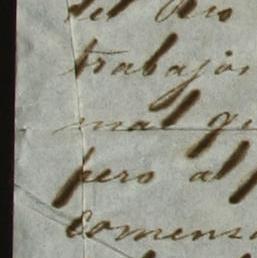 del Rio
trabajos
mal qu
pero al p
comens